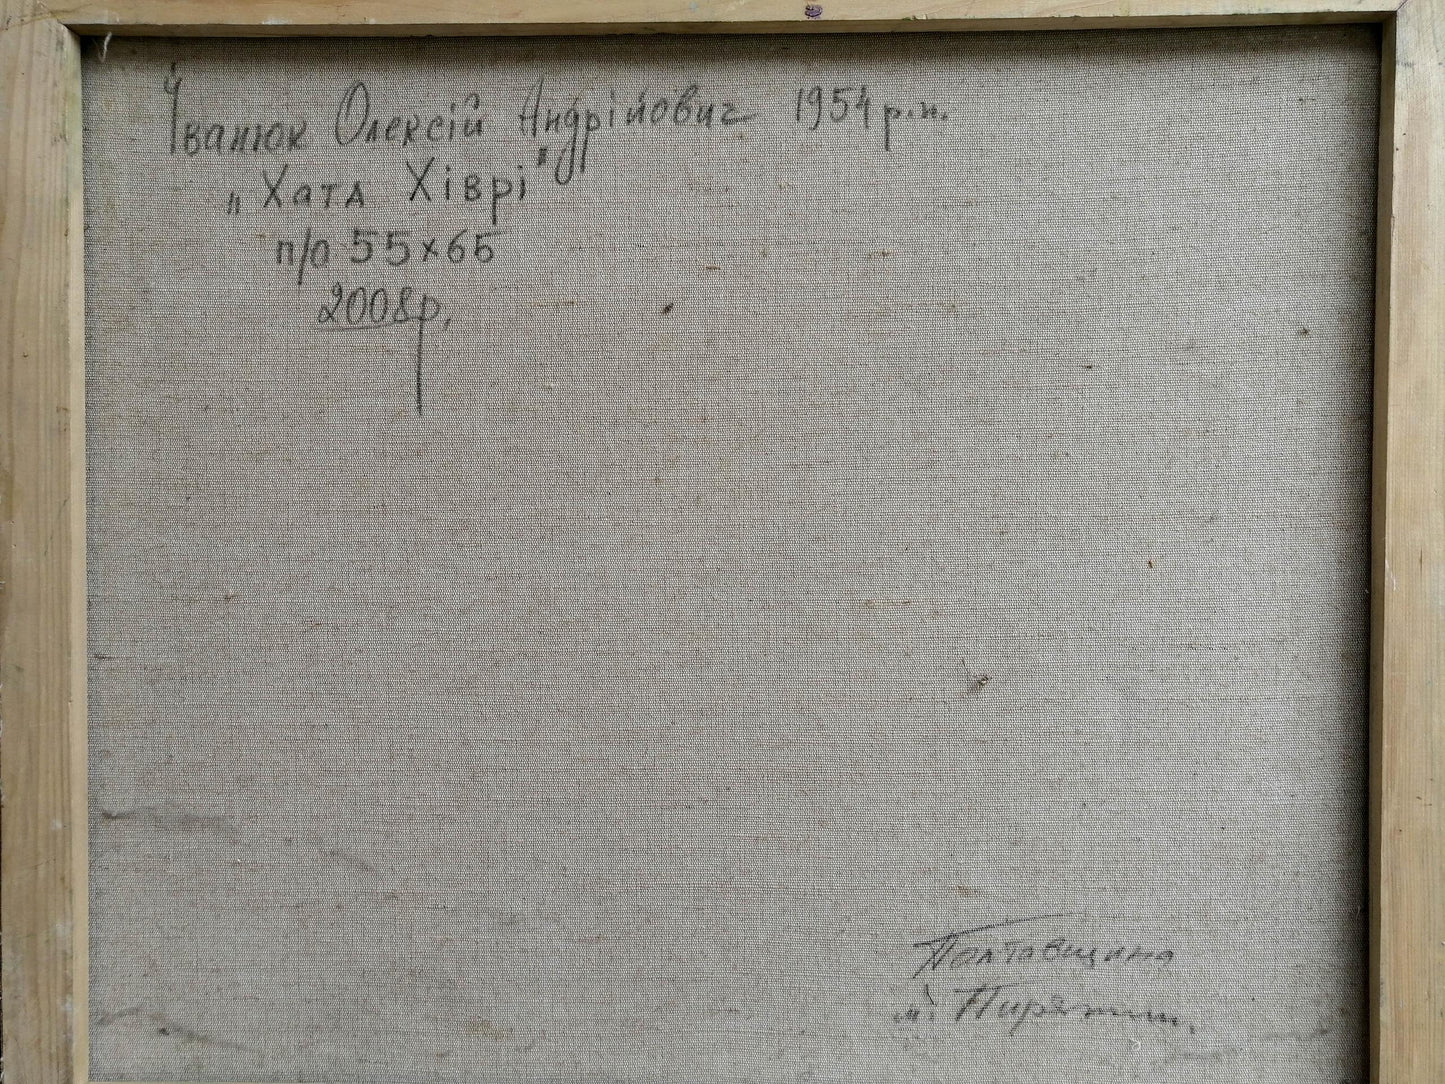 Іванюк Олексій Андрійович 1954 р.н.
„Хата Хіврі"
п/о 55х65
2008р.
Полтавщина
м. Пирятин.